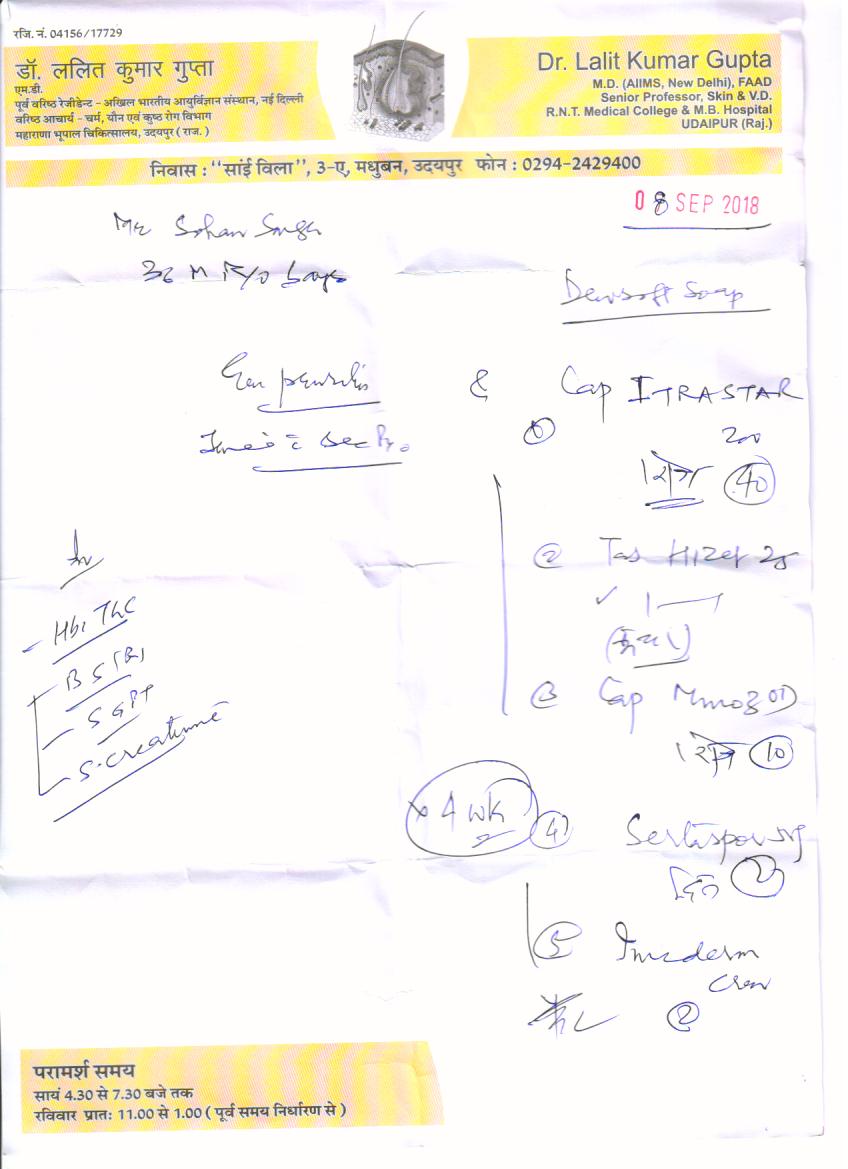 रजि. नं. 04156/17729
डॉ. ललित कुमार गुप्ता
एम.डी.
पूर्व वरिष्ठ रेजीडेन्ट - अखिल भारतीय आयुर्विज्ञान संस्थान, नई दिल्ली
वरिष्ठ आचार्य - चर्म, यौन एवं कुष्ठ रोग विभाग
महाराणा भूपाल चिकित्सालय, उदयपुर ( राज. )
Dr. Lalit Kumar Gupta
M.D. (AIIMS, New Delhi), FAAD
Senior Professor, Skin & V.D.
R.N.T. Medical College & M.B. Hospital
UDAIPUR (Raj.)
निवास : "सांई विला", 3-ए, मधुबन, उदयपुर फोन : 0294-2429400
08 SEP 2018
Mr Sohan Singh
36 M
Dewsoft Soap
Gen
& Cap ITRASTAR
① 200
40
② Tab Hizet 25
③ Cap
10
x 4 wk
④
2
⑤ Imederm
Cream
②
Inv
Hb, TLC
BS (R)
SGPT
S. creatinine
परामर्श समय
सायं 4.30 से 7.30 बजे तक
रविवार प्रातः 11.00 से 1.00 ( पूर्व समय निर्धारण से )